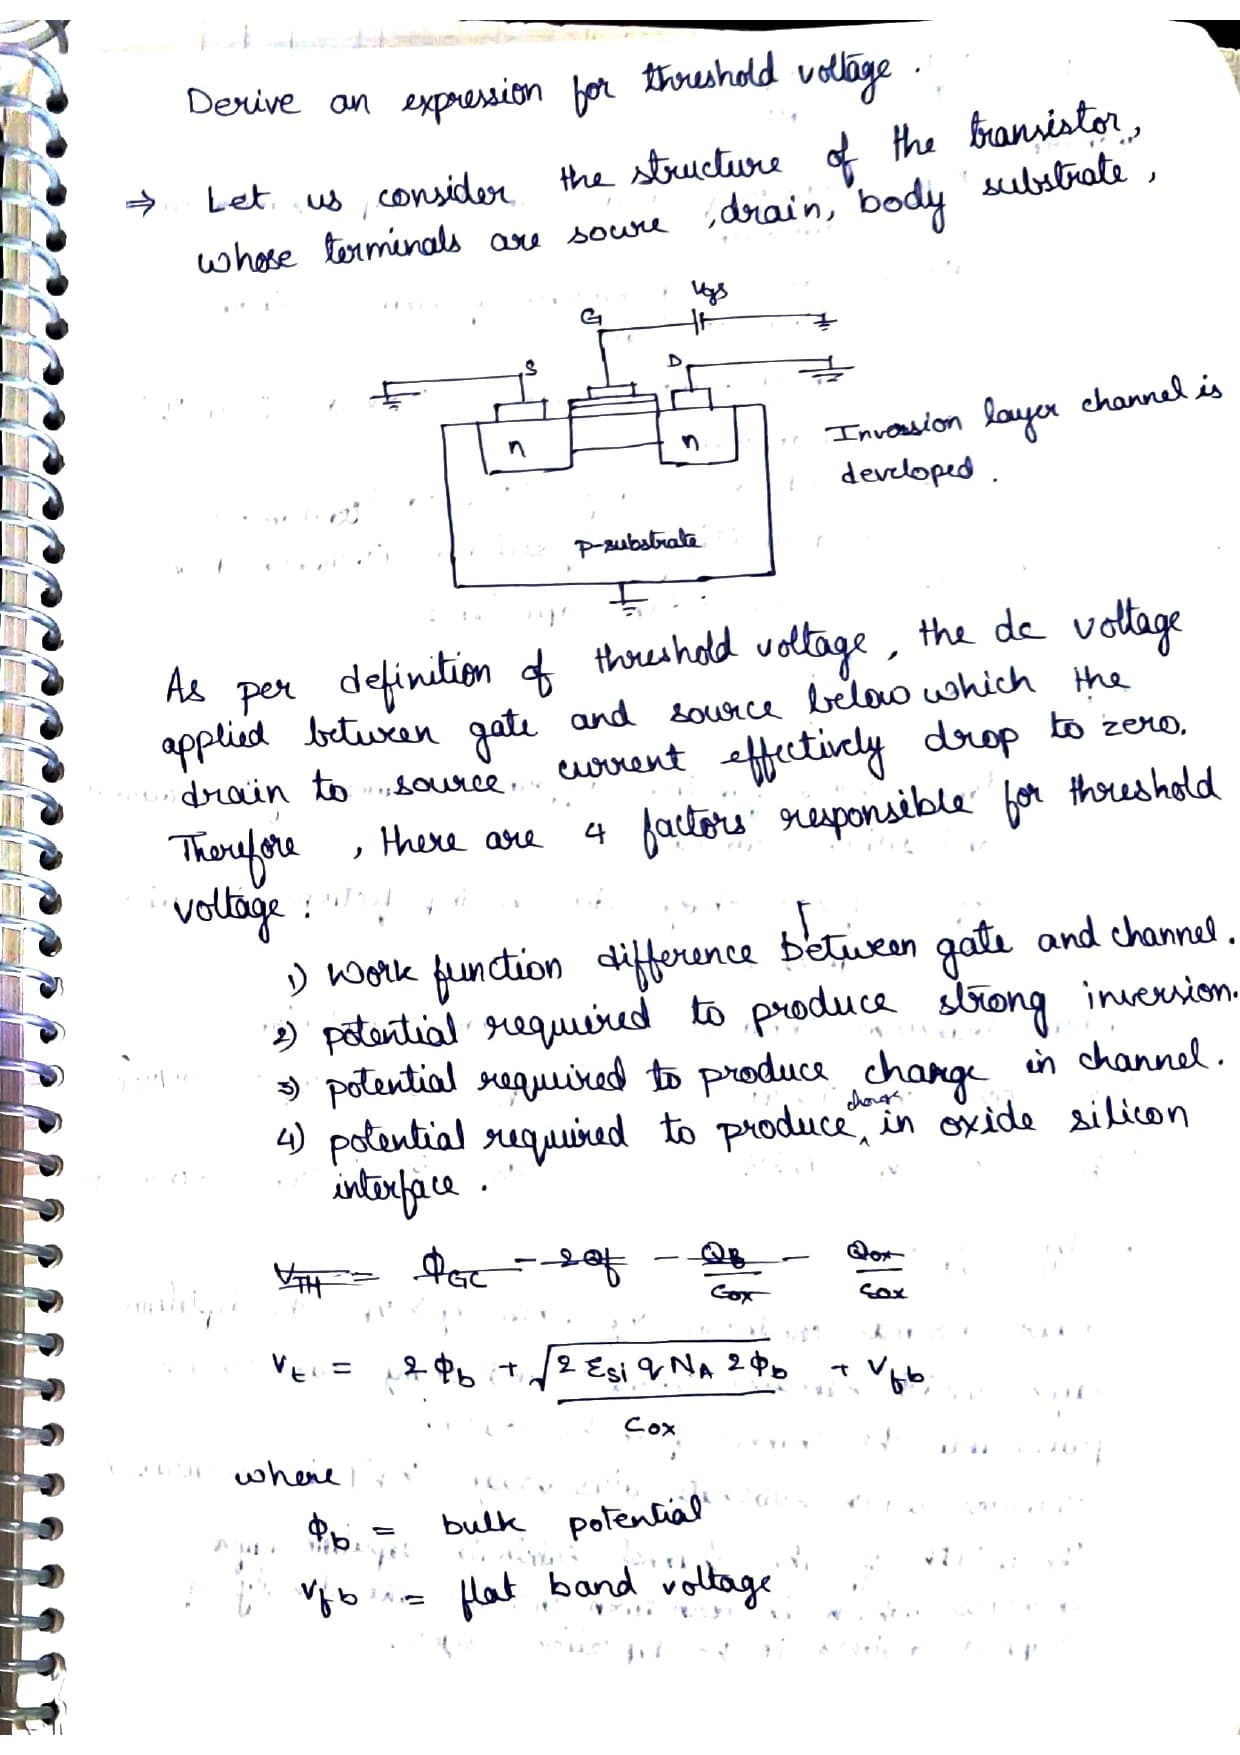 Derive an expression for threshold voltage.
⇒ Let us consider the structure of the transistor,
whose terminals are soure, drain, body substrate,
Vgs
G
S
D
n
n
Inversion layer channel is
developed.
p-substrate
As per definition of threshold voltage, the dc voltage
applied between gate and source below which the
drain to source current effectively drop to zero.
Therefore, there are 4 factors responsible for threshold
voltage:
1) work function difference between gate and channel.
2) potential required to produce strong inversion.
3) potential required to produce change in channel.
charge
4) potential required to produce ‸ in oxide silicon
interface.
VTH = ΦGC - 2Φf - QB/Cox - Qox/Cox
Vt = 2Φb + √(2 εsi q NA 2Φb)/Cox + Vfb
where
Φb = bulk potential
Vfb = flat band voltage